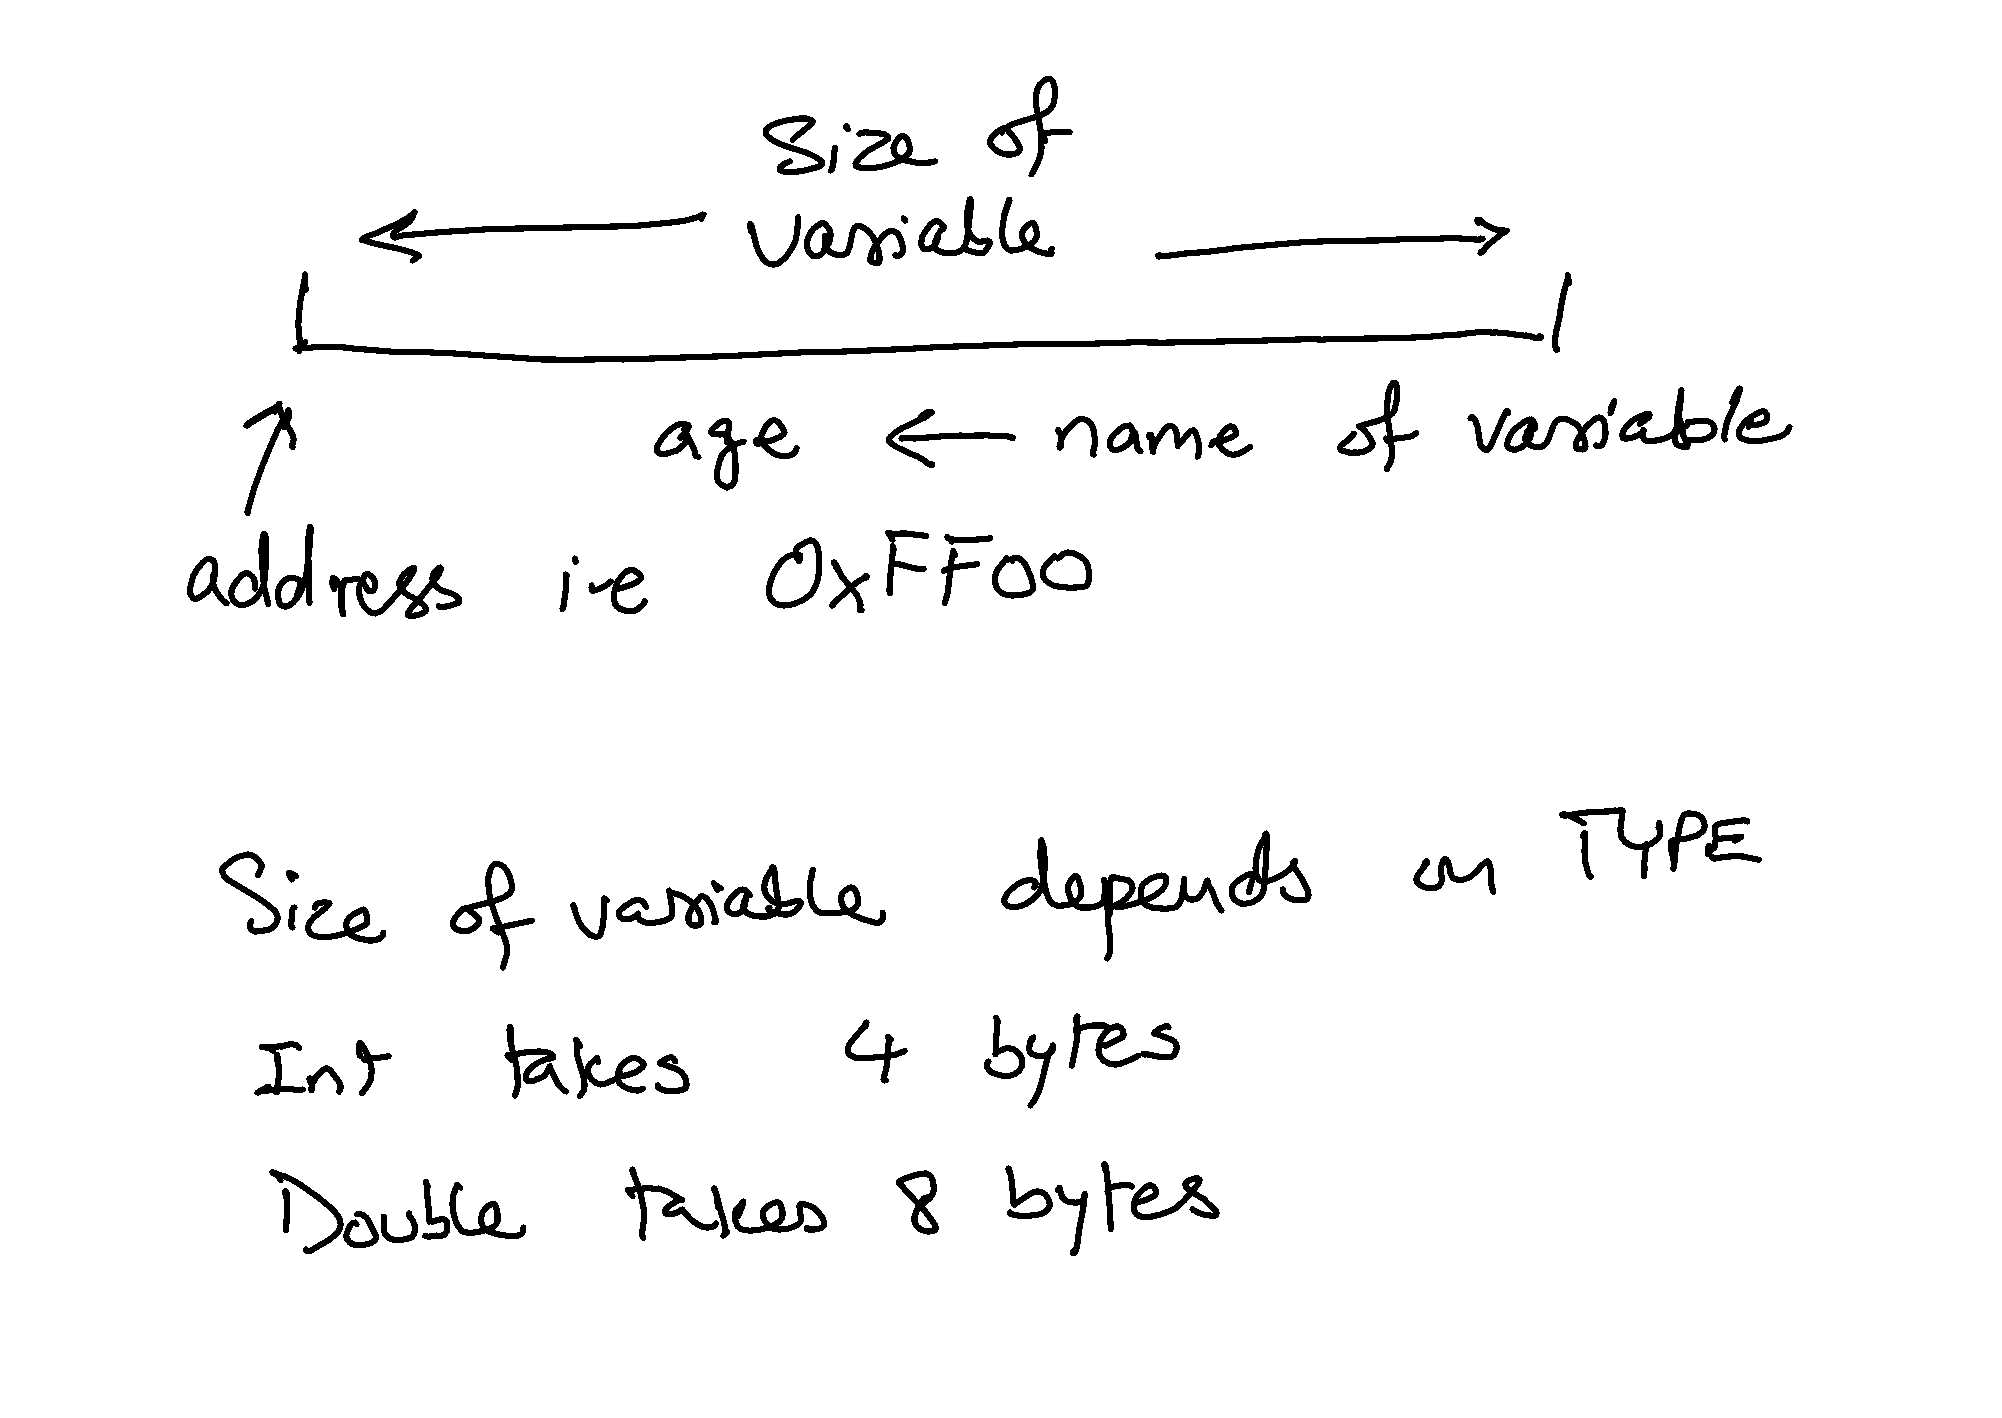 Size of
variable
age ← name of variable
address i.e 0xFF00
Size of variable depends on TYPE
Int takes 4 bytes
Double takes 8 bytes